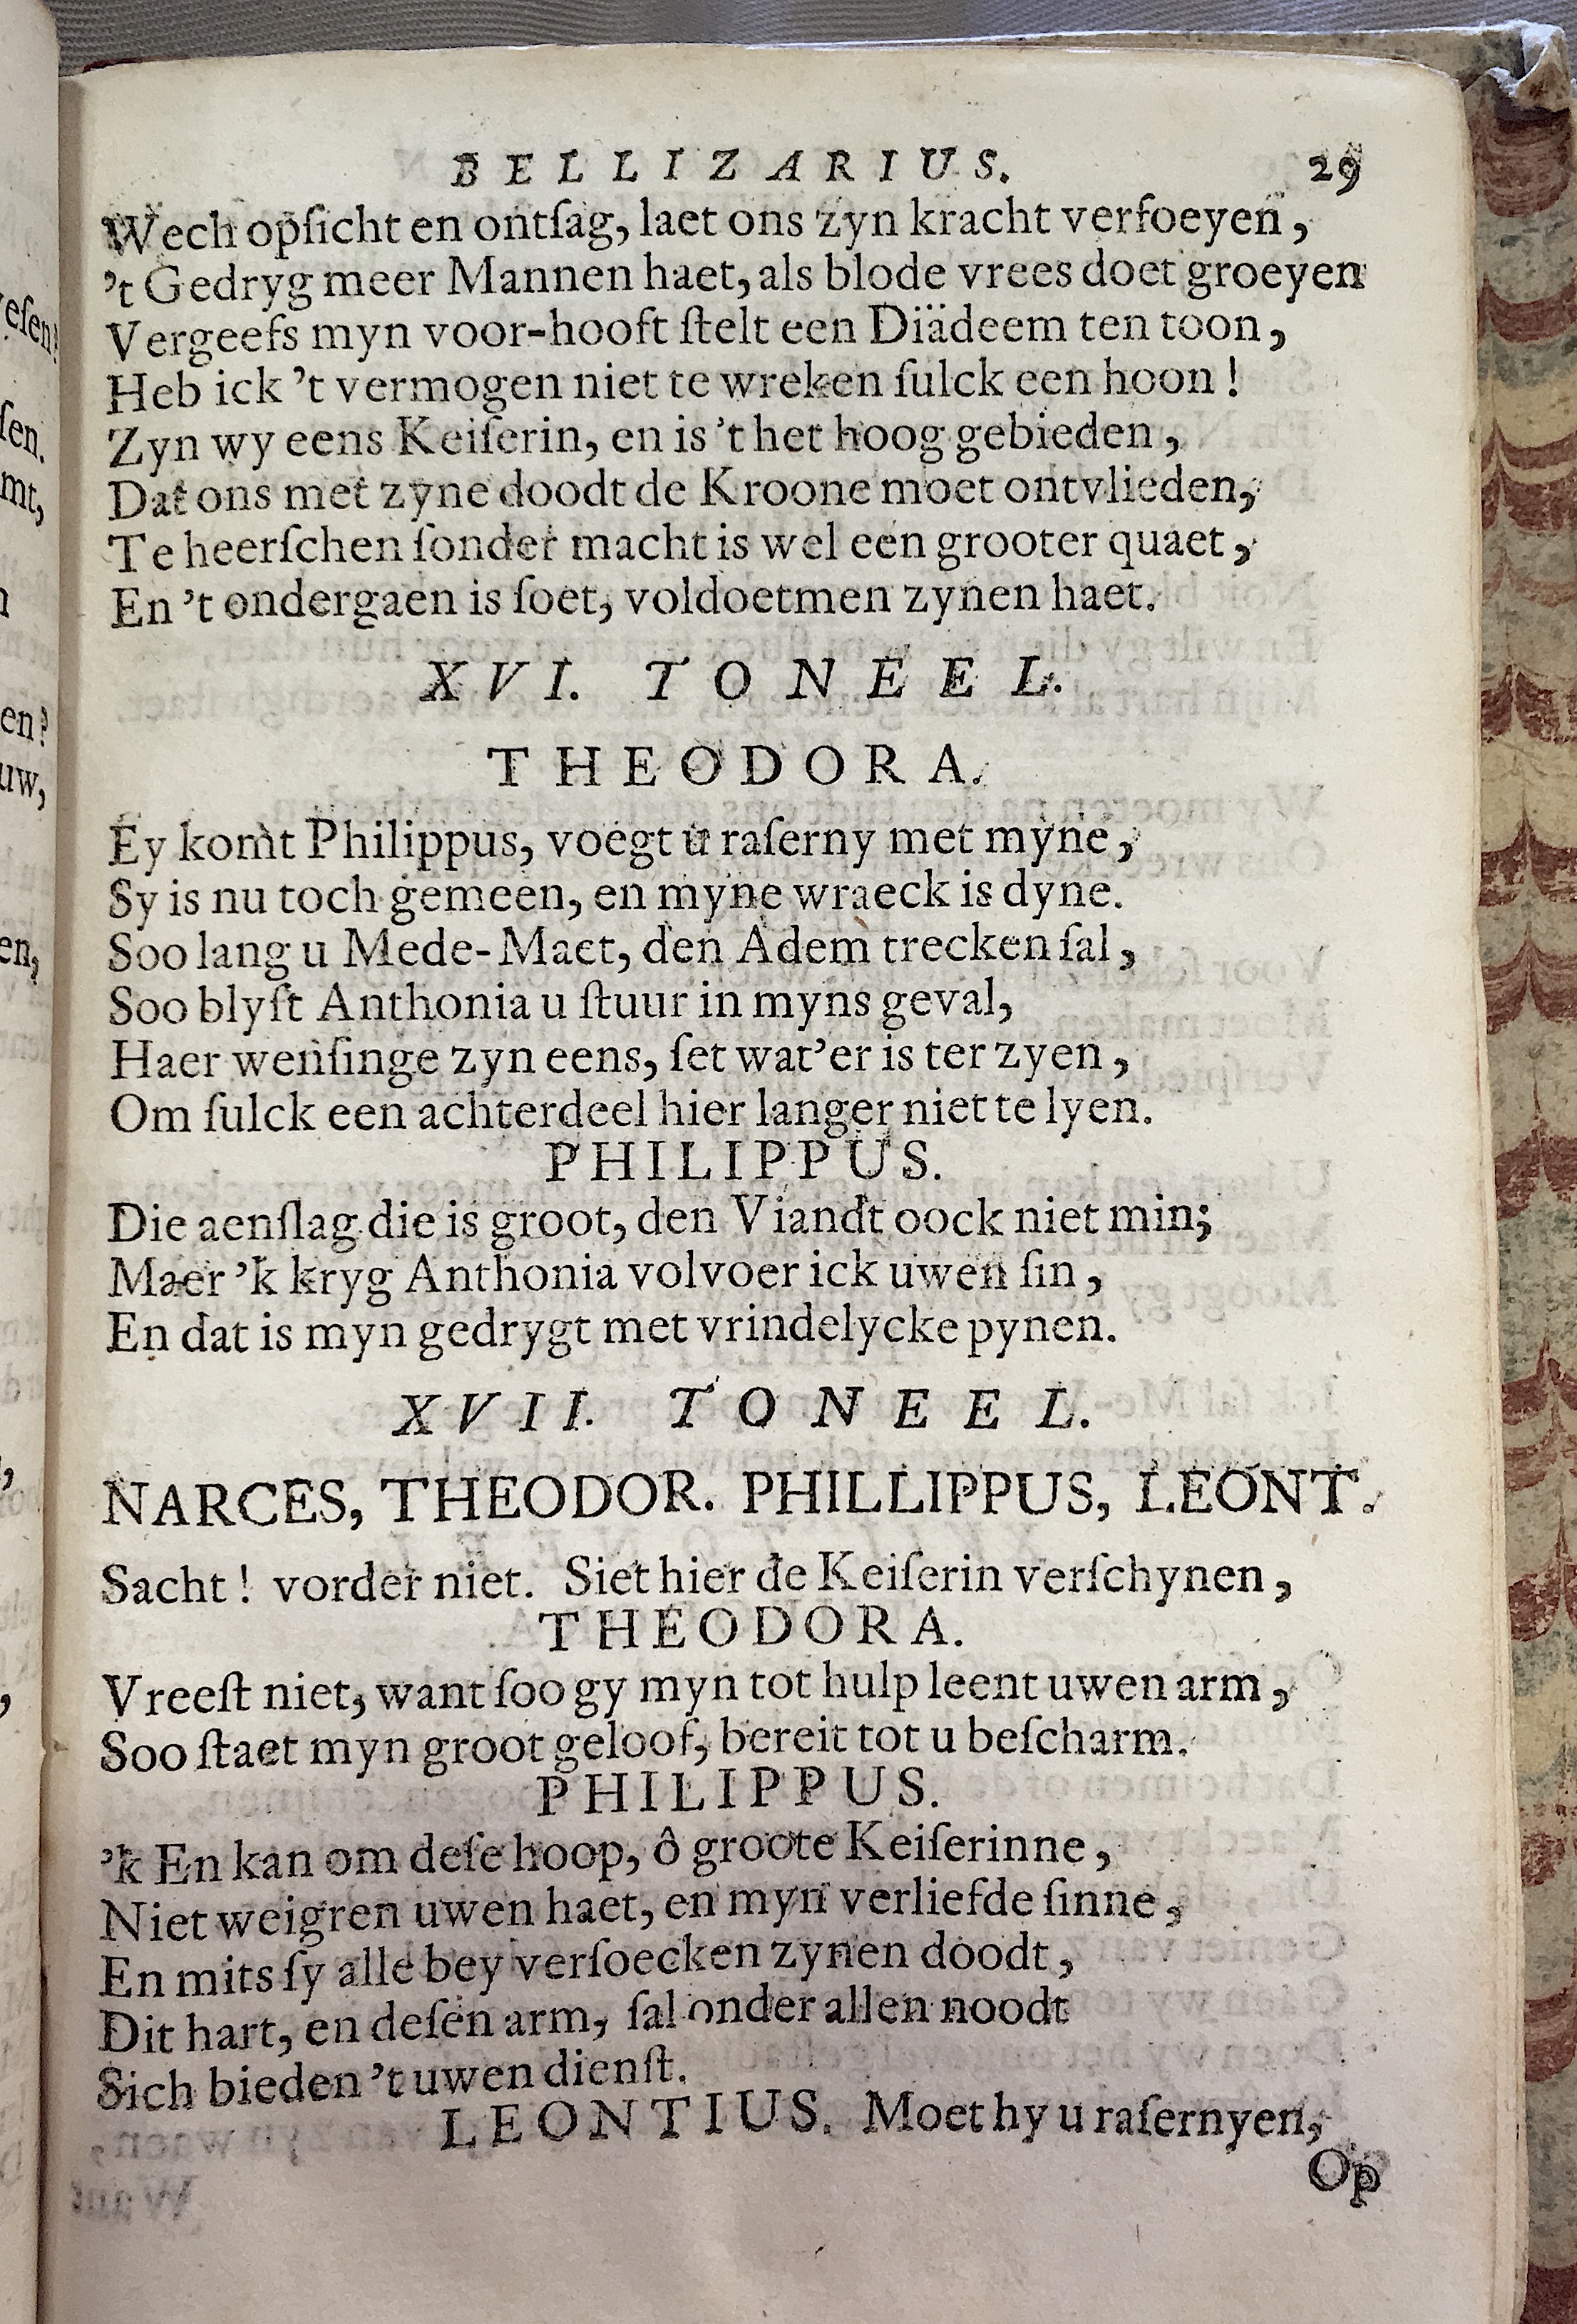 BELLIZARIUS. 29
Wech opſicht en ontſag, laet ons zyn kracht verfoeyen,
't Gedryg meer Mannen haet, als blode vrees doet groeyen
Vergeefs myn voor-hooft ſtelt een Diädeem ten toon,
Heb ick 't vermogen niet te wreken ſulck een hoon!
Zyn wy eens Keiſerin, en is 't het hoog gebieden,
Dat ons met zyne doodt de Kroone moet ontvlieden,
Te heerſchen ſonder macht is wel een grooter quaet,
En 't ondergaen is ſoet, voldoetmen zynen haet.
XVI. TONEEL.
THEODORA.
Ey komt Philippus, voegt u raſerny met myne,
Sy is nu toch gemeen, en myne wraeck is dyne.
Soo lang u Mede-Maet, den Adem trecken ſal,
Soo blyft Anthonia u ſtuur in myns geval,
Haer wenſinge zyn eens, ſet wat'er is ter zyen,
Om ſulck een achterdeel hier langer niet te lyen.
PHILIPPUS.
Die aenſlag die is groot, den Viandt oock niet min;
Maer 'k kryg Anthonia volvoer ick uwen ſin,
En dat is myn gedrygt met vrindelycke pynen.
XVII. TONEEL.
NARCES, THEODOR. PHILLIPPUS, LEONT.
Sacht! vorder niet. Siet hier de Keiſerin verſchynen,
THEODORA.
Vreeſt niet, want ſoo gy myn tot hulp leent uwen arm,
Soo ſtaet myn groot geloof, bereit tot u beſcharm.
PHILIPPUS.
'k En kan om deſe hoop, ô groote Keiſerinne,
Niet weigren uwen haet, en myn verliefde ſinne,
En mits ſy alle bey verſoecken zynen doodt,
Dit hart, en deſen arm, ſal onder allen noodt
Sich bieden 't uwen dienſt.
LEONTIUS. Moet hy u raſernyen,
Op